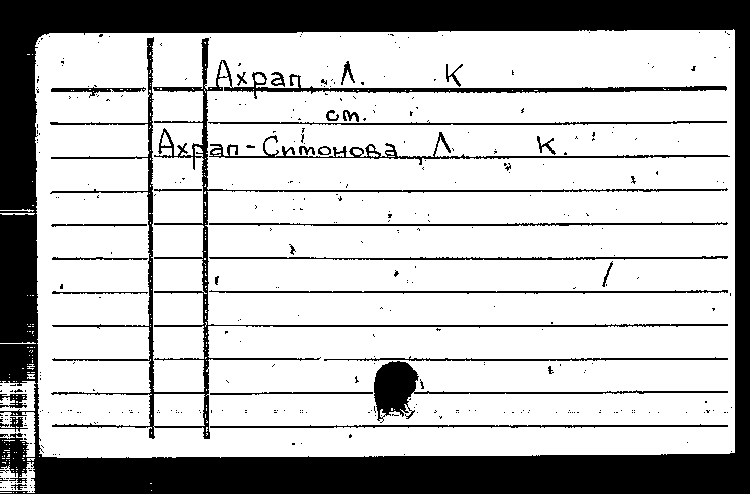 Ахрап, Л. К
ст.
Ахрап-Симонова, Л. К.